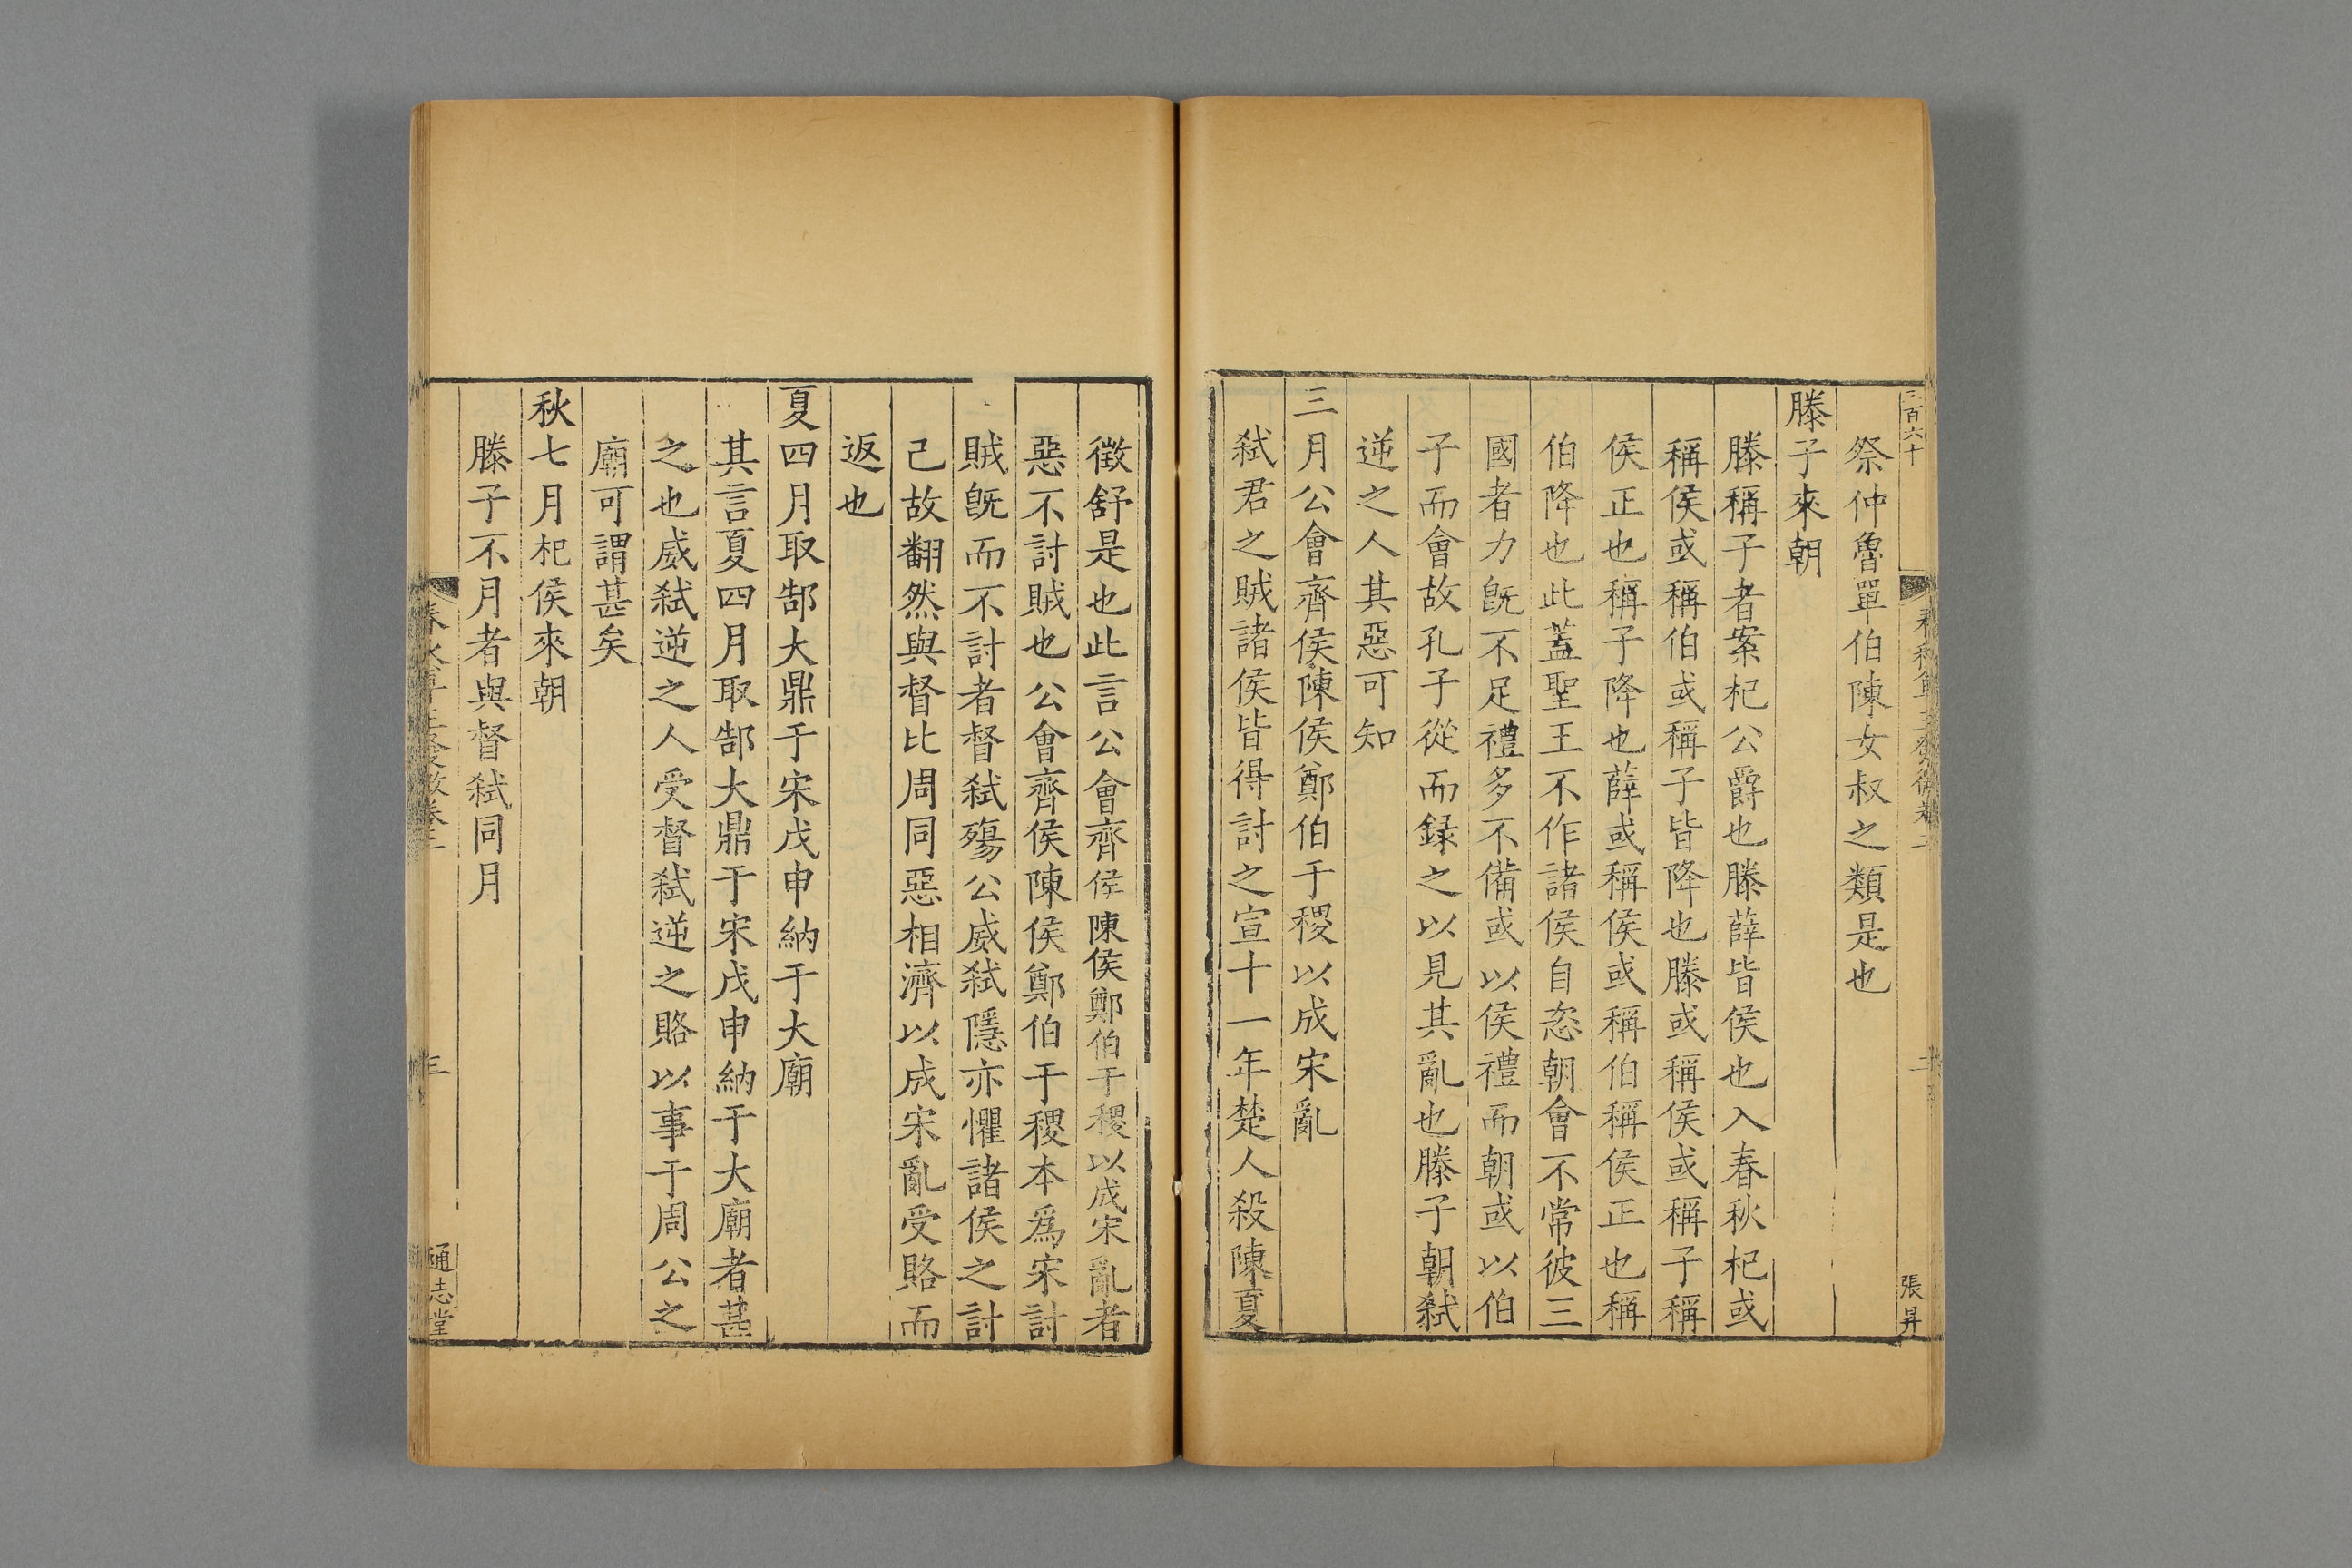 百六十
張昇
祭仲魯單伯陳女叔之類是也
滕子來朝
滕稱子者案杞公爵也滕薛皆侯也入春秋杞或
稱侯或稱伯或稱子皆降也滕或稱侯或稱子稱
侯正也稱子降也薛或稱侯或稱伯稱侯正也稱
伯降也此蓋聖王不作諸侯自恣朝會不常彼三
國者力旣不足禮多不備或以侯禮而朝或以伯
子而會故孔子從而録之以見其亂也滕子朝弑
逆之人其惡可知
三月公會齊侯陳侯鄭伯于稷以成宋亂
弑君之賊諸侯皆得討之宣十一年楚人殺陳夏
徵舒是也此言公會齊侯陳侯鄭伯于稷以成宋亂者
惡不討賊也公會齊侯陳侯鄭伯于稷本爲宋討
賊旣而不討者督弑殤公威弑隱亦懼諸侯之討
己故翻然與督比周同惡相濟以成宋亂受賂而
返也
夏四月取郜大鼎于宋戊申納于大廟
其言夏四月取郜大鼎于宋戊申納于大廟者甚
之也威弑逆之人受督弑逆之賂以事于周公之
廟可謂甚矣
秋七月杞侯來朝
滕子不月者與督弑同月
三
通志堂